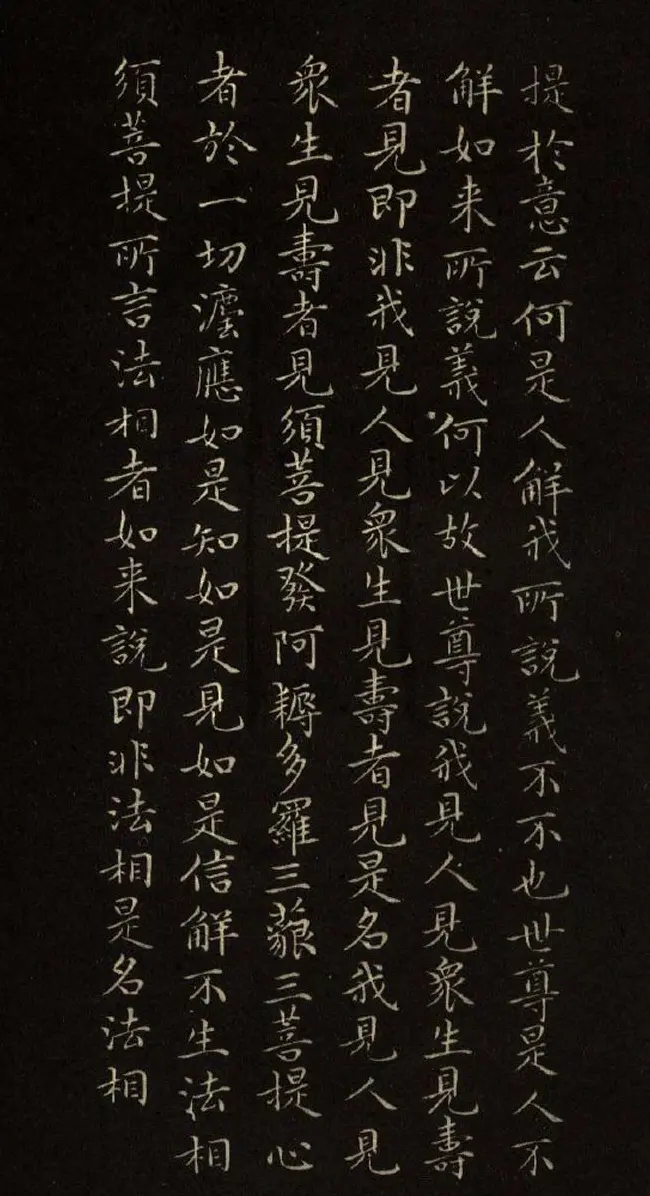 提於意云何是人解我所說義不不也世尊是人不
解如来所說義何以故世尊說我見人見衆生見壽
者見即非我見人見衆生見壽者見是名我見人見
衆生見壽者見須菩提發阿耨多羅三藐三菩提心
者於一切法應如是知如是見如是信解不生法相
須菩提所言法相者如来說即非法相是名法相